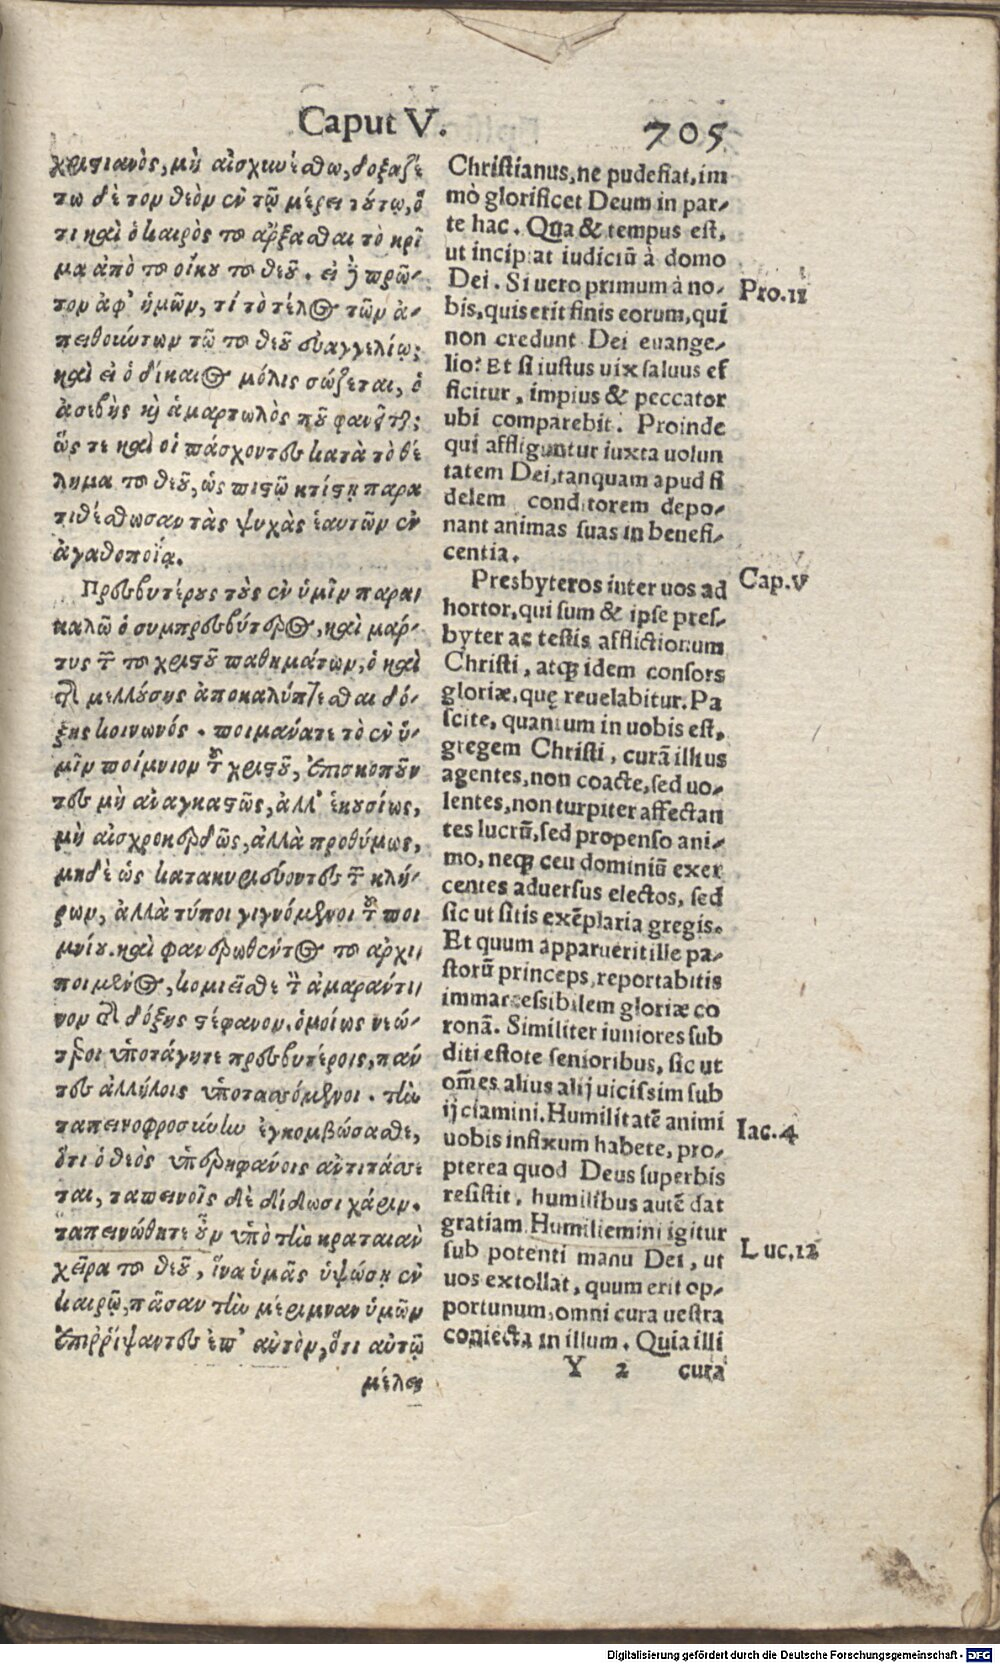 Caput V. 705
χριστιανὸς, μὴ αἰσχυνέσθω, δοξαζέ
τω δὲ τὸν θεὸν ἐν τῷ μέρει τούτῳ, ὅ
τι καὶ ὁ καιρὸς τοῦ ἄρξασθαι τὸ κρῖ
μα ἀπὸ τοῦ οἴκου τοῦ θεοῦ. εἰ δὲ πρῶ-
τον ἀφ' ἡμῶν, τί τὸ τέλος τῶν ἀ-
πειθούντων τῷ τοῦ θεοῦ εὐαγγελίῳ;
καὶ εἰ ὁ δίκαιος μόλις σώζεται, ὁ
ἀσεβὴς καὶ ἁμαρτωλὸς ποῦ φανεῖται;
ὥς τε καὶ οἱ πάσχοντες κατὰ τὸ θέ
λημα τοῦ θεοῦ, ὡς πιστῷ κτίστῃ παρα
τιθέσθωσαν τὰς ψυχὰς ἑαυτῶν ἐν
ἀγαθοποιΐᾳ.
Πρεσβυτέρους τοὺς ἐν ὑμῖν παρα
καλῶ ὁ συμπρεσβύτερος, καὶ μάρ-
τυς τῶν τοῦ χριστοῦ παθημάτων, ὁ καὶ
τῆς μελλούσης ἀποκαλύπτεσθαι δό-
ξης κοινωνός. ποιμάνατε τὸ ἐν ὑ-
μῖν ποίμνιον τοῦ χριστοῦ, ἐπισκοποῦν
τες μὴ ἀναγκαστῶς, ἀλλ' ἑκουσίως,
μὴ αἰσχροκερδῶς, ἀλλὰ προθύμως,
μηδὲ ὡς κατακυριεύοντες τῶν κλή-
ρων, ἀλλὰ τύποι γιγνόμενοι τοῦ ποι
μνίου. καὶ φανερωθέντος τοῦ ἀρχι
ποιμένος, κομιεῖσθε τὸν ἀμαράντι
νον τῆς δόξης στέφανον. ὁμοίως νεώ-
τεροι ὑποτάγητε πρεσβυτέροις, πάν
τες ἀλλήλοις ὑποτασσόμενοι. τὴν
ταπεινοφροσύνην ἐγκομβώσασθε,
ὅτι ὁ θεὸς ὑπερηφάνοις ἀντιτάσσε
ται, ταπεινοῖς δὲ δίδωσι χάριν.
ταπεινώθητε οὖν ὑπὸ τὴν κραταιὰν
χεῖρα τοῦ θεοῦ, ἵνα ὑμᾶς ὑψώσῃ ἐν
καιρῷ, πᾶσαν τὴν μέριμναν ὑμῶν
ἐπιῤῥίψαντες ἐπ' αὐτὸν, ὅτι αὐτῷ
μέλει
Christianus, ne pudefiat, im
mò glorificet Deum in par-
te hac. Qua & tempus est,
ut incipiat iudiciū à domo
Dei. Si uero primum à no-
bis, quis erit finis eorum, qui
non credunt Dei euange-
lio? Et si iustus uix saluus ef
ficitur, impius & peccator
ubi comparebit. Proinde
qui affliguntur iuxta uolun
tatem Dei, tanquam apud fi
delem conditorem depo-
nant animas suas in benefi-
centia.
Presbyteros inter uos ad
hortor, qui sum & ipse pres-
byter ac testis afflictionum
Christi, atq; idem consors
gloriæ, quę reuelabitur. Pa
scite, quantum in uobis est,
gregem Christi, curā illius
agentes, non coacte, sed uo-
lentes, non turpiter affectan
tes lucrū, sed propenso ani-
mo, neq; ceu dominiū exer
centes aduersus electos, sed
sic ut sitis exēplaria gregis.
Et quum apparuerit ille pa-
storū princeps, reportabitis
immarcessibilem gloriæ co
ronā. Similiter iuniores sub
diti estote senioribus, sic ut
omēs alius alij uicissim sub
ijciamini. Humilitatē animi
uobis infixum habete, pro-
pterea quod Deus superbis
resistit, humilibus autē dat
gratiam. Humiliemini igitur
sub potenti manu Dei, ut
uos extollat, quum erit op-
portunum, omni cura uestra
coniecta in illum. Quia illi
Y 2 cura
Pro.11
Cap.V
Iac.4
Luc.12
Digitalisierung gefördert durch die Deutsche Forschungsgemeinschaft - DFG